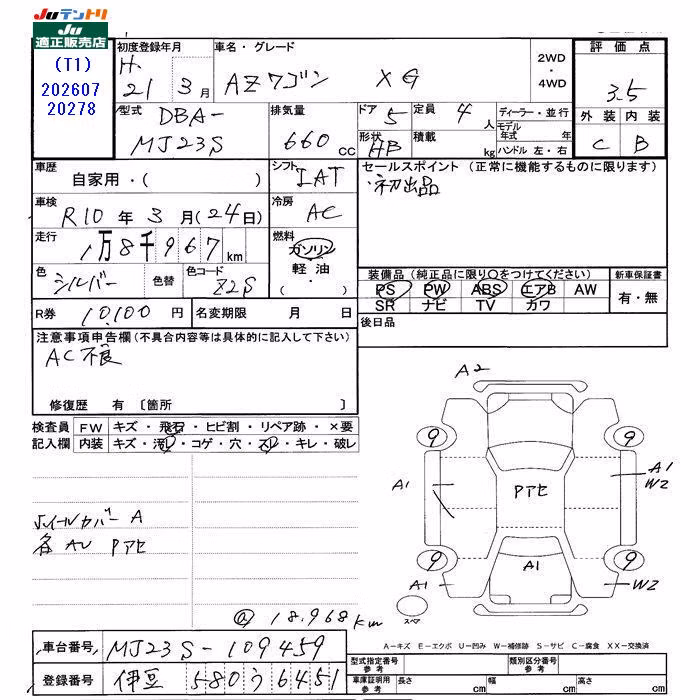 JUテントリ
JU
適正販売店
(T1)
202607
20278
初度登録年月
H.
21 3月
車名・グレード
AZワゴン XG
2WD
・
4WD
評価点
3.5
外装 内装
C B
型式 DBA-
MJ23S
排気量
660 cc
ドア 5
定員 4 人
形状 HB
積載 kg
ディーラー・並行
モデル年式 年
ハンドル 左・右
車歴
自家用・( )
シフト
IAT
セールスポイント (正常に機能するものに限ります)
・初出品
車検
R10年3月(24日)
冷房
AC
走行
1万8千967km
燃料
ガソリン
軽油
( ・ )
色
シルバー
色替
色コード
Z2S
装備品 (純正品に限り○をつけてください)
新車保証書
PS PW ABS エアB AW
SR ナビ TV カワ
有・無
R券 10,100円
名変期限 月 日
後日品
注意事項申告欄 (不具合内容等は具体的に記入して下さい)
AC不良
修復歴 有 〔箇所 〕
検査員記入欄
FW キズ・飛石・ヒビ割・リペア跡・×要
内装 キズ・汚レ・コゲ・穴・スレ・キレ・破レ
ホイールカバー A
各AU Pアセ
@ 18,968Km
A2
9 9
A1 Pアセ A1
W2
9 9
A1 A1 W2
スペア
A-キズ E-エクボ U-凹み W-補修跡 S-サビ C-腐食 XX-交換済
車台番号 MJ23S-109459
登録番号 伊豆 580 う 6451
型式指定番号 参考
類別区分番号 参考
車庫証明用 参考
長さ cm 幅 cm 高さ cm